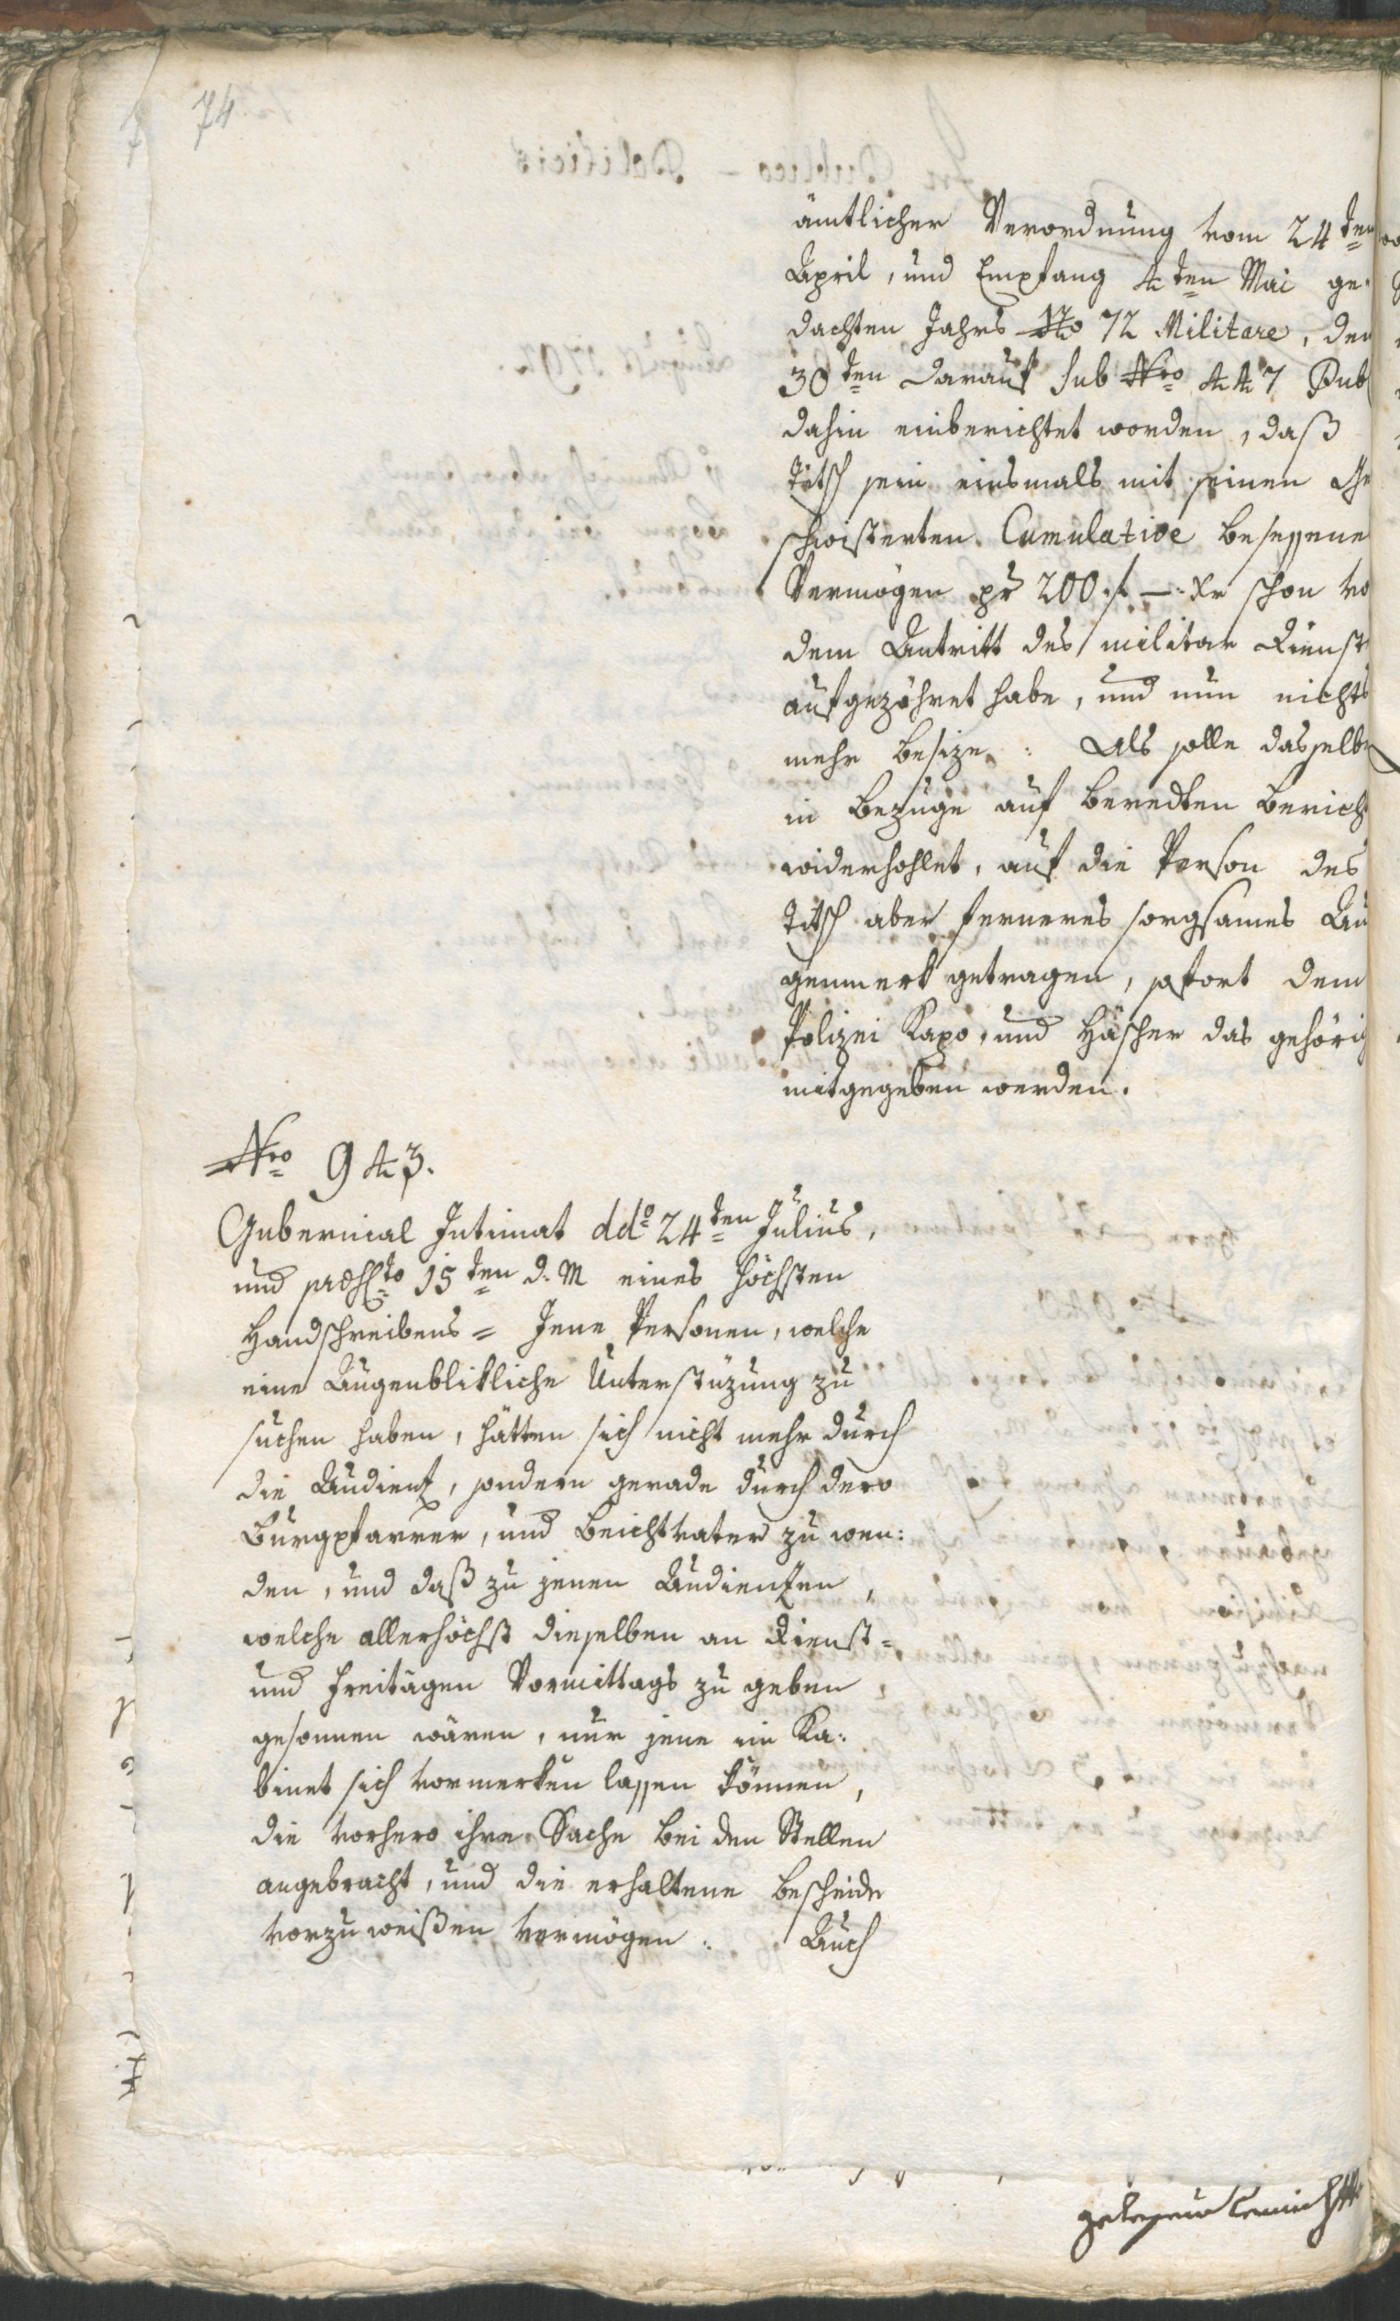 74
ämtlicher Verordnung vom 24ten
April, und Empfang 4ten Mai ge-
dachten Jahrs No 72 Militare, den
30ten darauf sub Nro 447 Pub
dahin einberichtet worden, daß
Titsch sein einsmals mit seinen Ge
schwisterten Cumulative besessene
Vermögen pr 200 f — Xr schon vo
dem Antritt des militar Dienst
aufgezöhret habe, und nun nichts
mehr besize: Als solle dasselbe
in Bezuge auf beredten Berich
widerhohlet, auf die Person des
Titsch aber ferneres sorgsames Au
genmerk getragen, sofort dem
Polizei Kapo, und Häscher das gehörig
mitgegeben werden.
Nro 943.
Gubernial Intimat ddo 24ten Julius,
und 15ten d: M eines höchsten
Handschreibens = Jene Personen, welche
eine Augenblikliche Unterstüzung zu
suchen haben, hätten sich nicht mehr durch
die Audienz, sondern gerade durch dero
Burgpfarrer, und Beichtvater zu wen:
den, und daß zu jenen Audienzen,
welche allerhöchst dieselben an Dienst=
und Freitägen Vormittags zu geben
gesonnen wären, nur jene im Ka:
binet sich vormerken lassen können,
die vorhero ihre Sache bei den Stellen
angebracht, und die erhaltene Bescheide
vorzuweißen vermögen: Auch